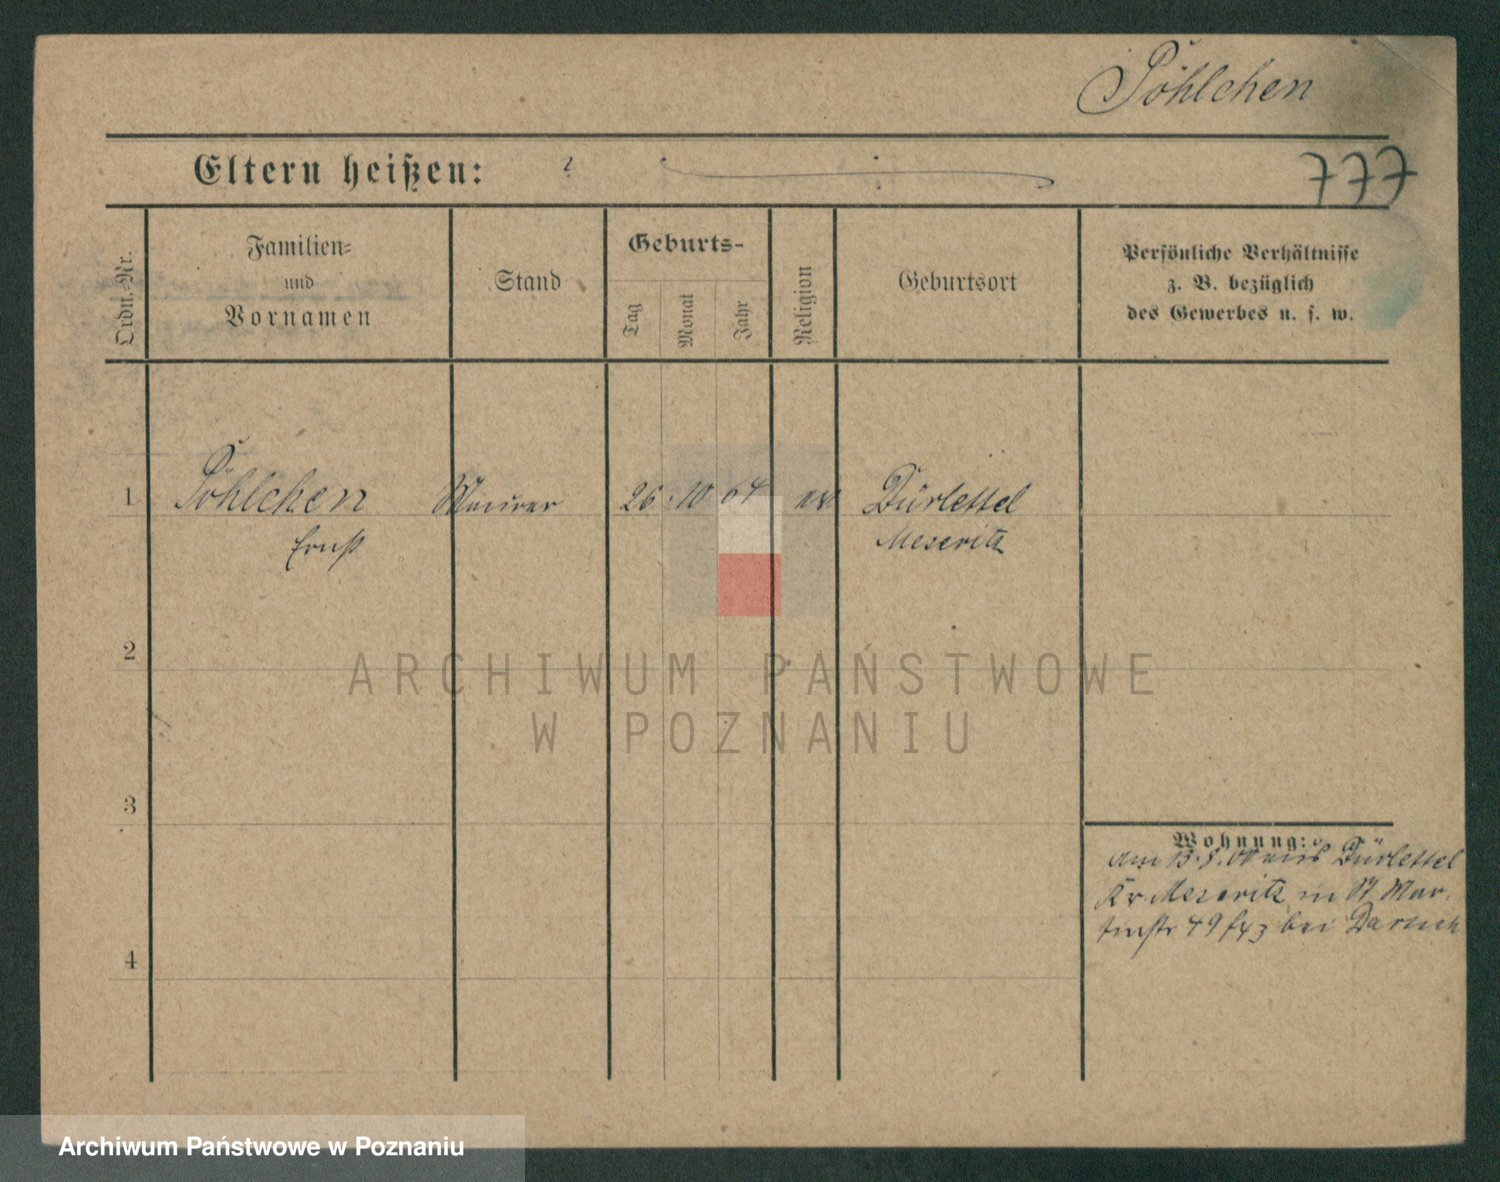 Pöhlchen
Eltern heißen: ?
777
Ordn.-Nr.
Familien=
und
Vornamen
Stand
Geburts-
Tag
Monat
Jahr
Religion
Geburtsort
Persönliche Verhältnisse
z. B. bezüglich
des Gewerbes u. s. w.
1 Pöhlchen Maurer 26. 10 64 ev Dürlettel
Ernst Meseritz
ARCHIWUM PAŃSTWOWE
W POZNANIU
2
3
Wohnung:
am 13.8.00 aus Dürlettel
Kr. Meseritz in St Mar-
tinstr 49 bei
4
Archiwum Państwowe w Poznaniu